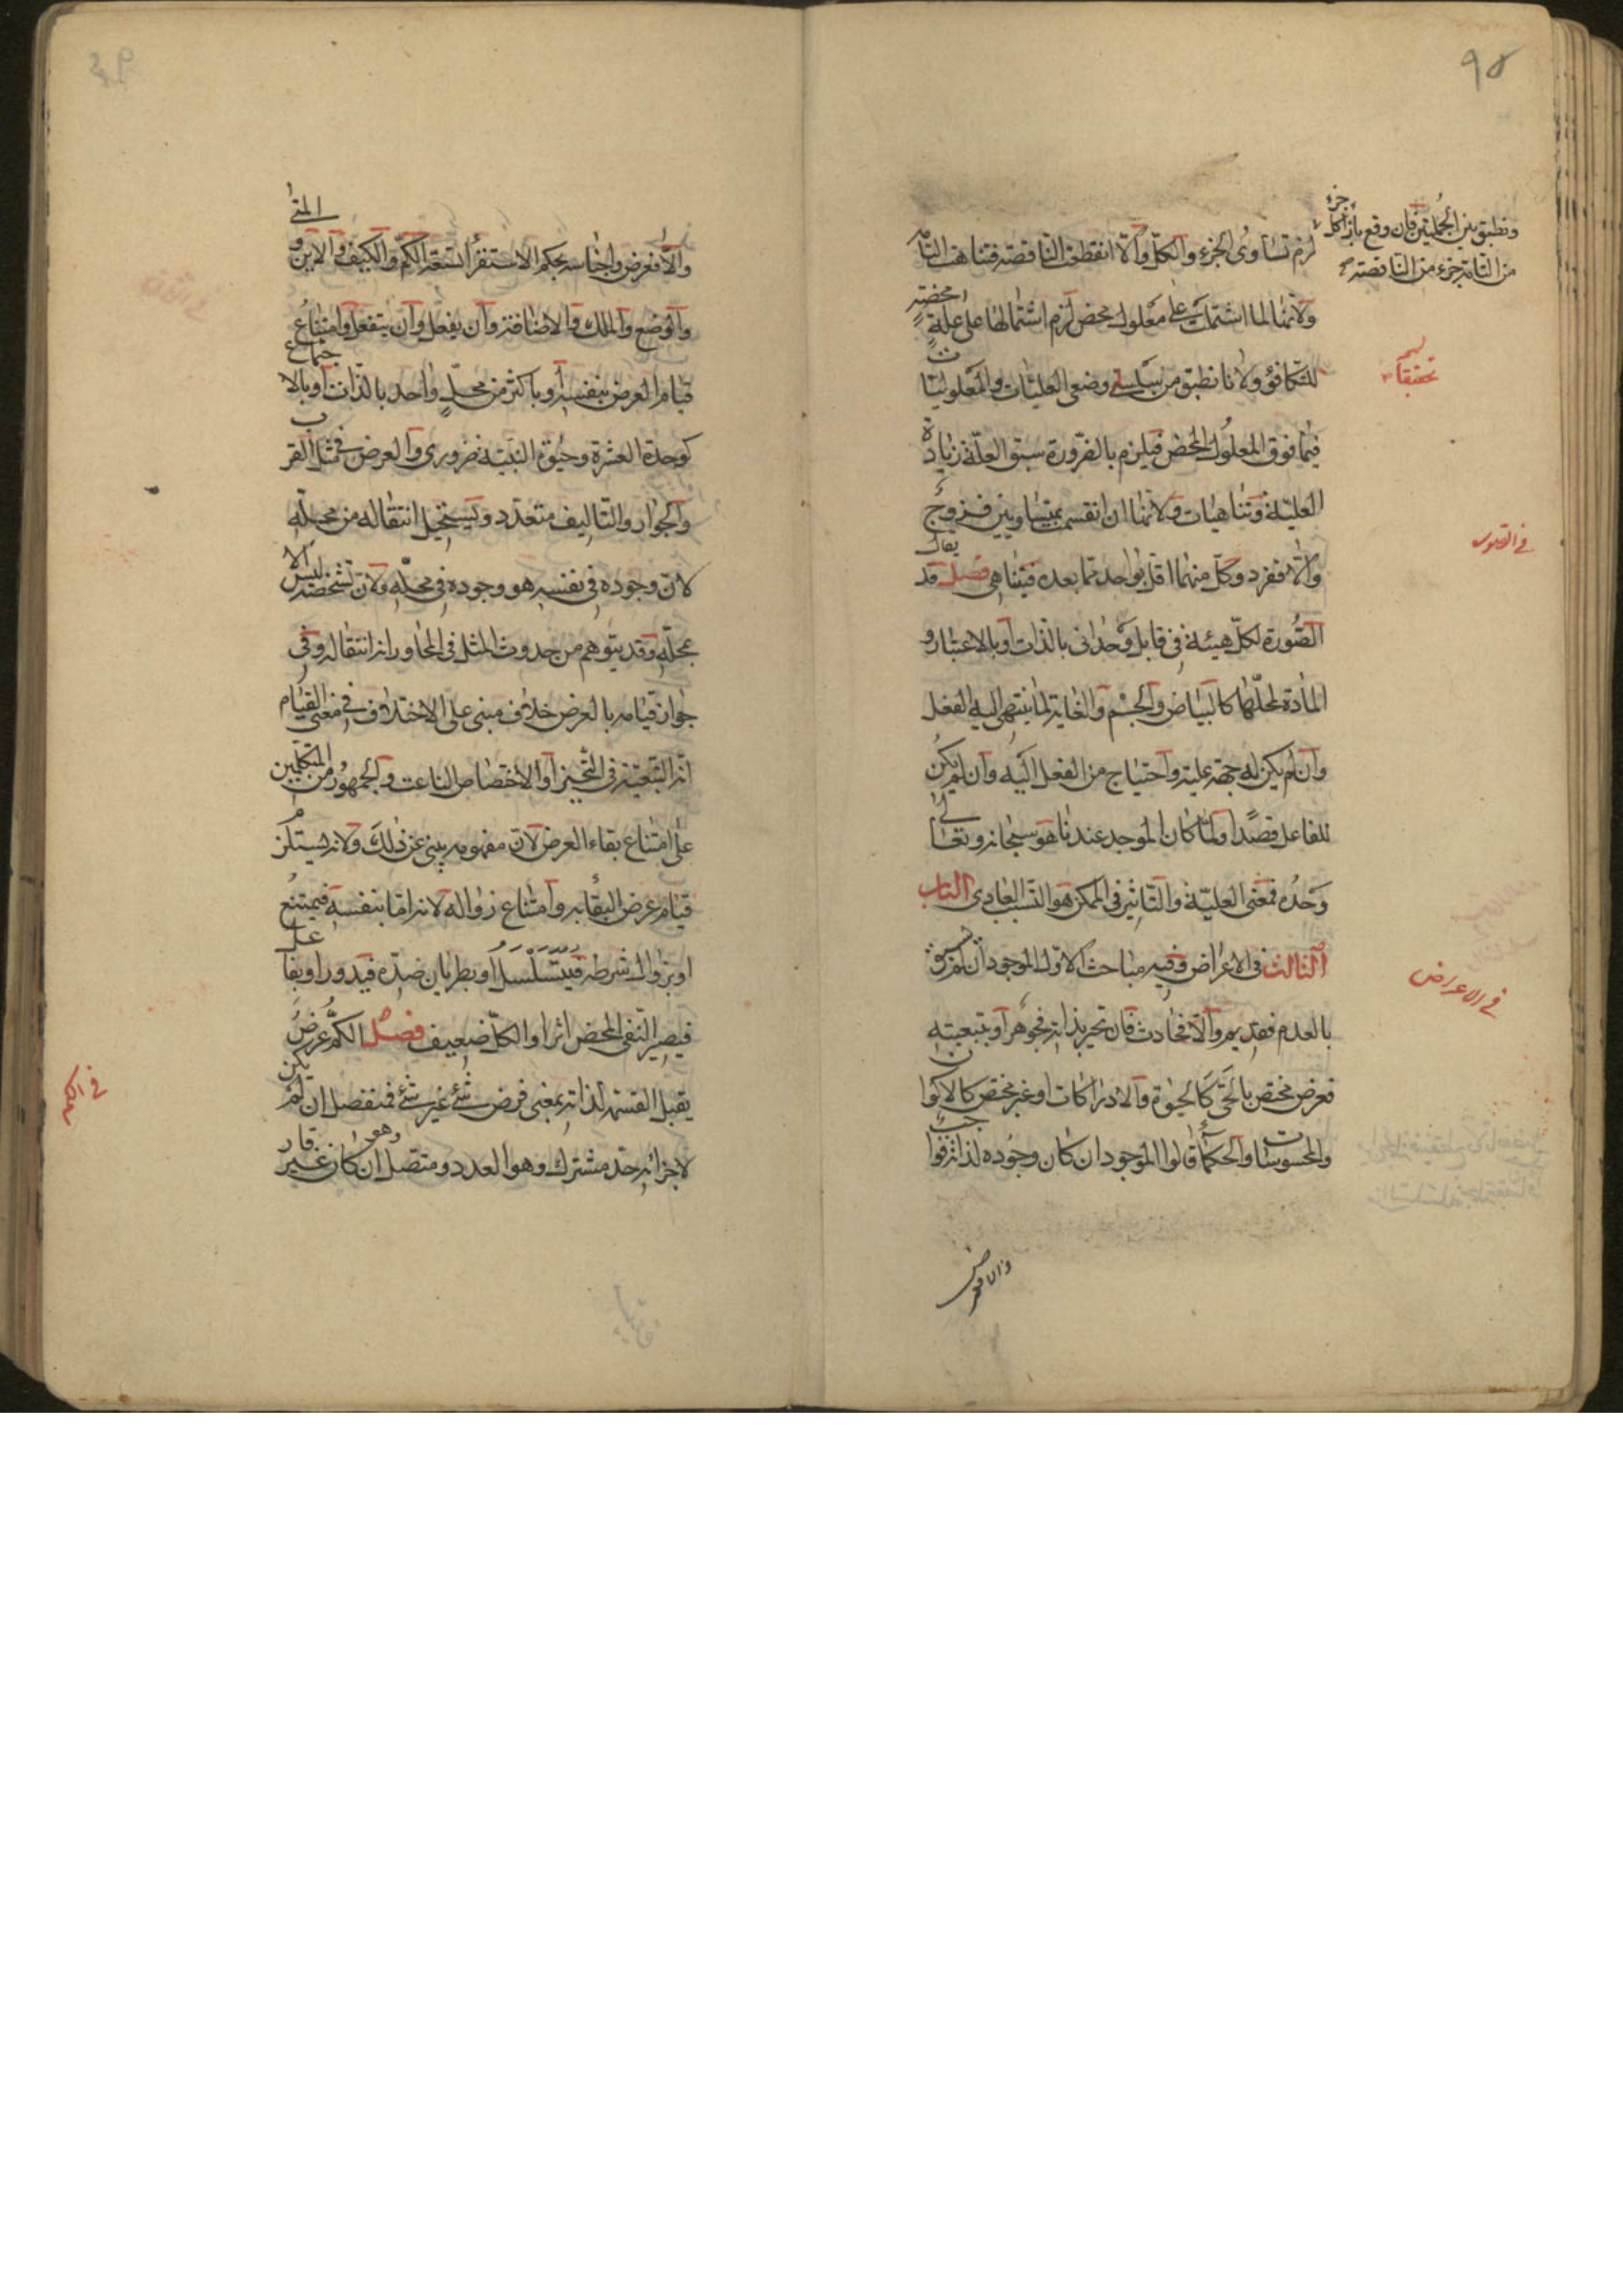 ٩٥
ونطبق بين الجملتين فان وقع بازاء كل جزء
من التامة جزء من الناقصة
لزم تساوى الجزء والكل والا انقطعت الناقصة فتناهت التامة
ولانها لما اشتملت على معلول محض لزم اشتمالها على علة محضة
تحقيقا
للتكافؤ ولانا نطبق من سلسلتى وضعى العليات والمعلوليات
فيما فوق المعلول المحض فيلزم بالضرورة سبق العلة زيادة
العلية وتناهيان ولانها ان انقسمت بمتساويين فزوج
والا ففرد وكل منهما اقل بواحد مما بعده فيتناهى فصل قد يقال
الصورة لكل هيئة فى قابل وحدانى بالذات او بالاعتبار و
المادة لمحلها كالبياض والجسم والغاية لما ينتهى اليه الفعل
وان لم يكن له جهة علية واحتياج من الفعل اليه وان لم يكن
للفاعل قصدا ولما كان الموجد عندنا هو سبحانه وتعالى
وحده فمعنى العلية والتاثير فى الممكن هو السبب العادى الباب
الثالث فى الاعراض وفيه مباحث الاول الموجود ان لم يسبق
فى الاعراض
بالعدم فقديم والا فحادث فان تحيز بذاته فجوهر او بتبعيته
فعرض مختص بالحى كالحيوة والادراكات او غير مختص كالاكوان
والمحسوسات والحكماء قالوا الموجود ان كان وجوده لذاته فواجب
والا فعرض
والا فعرض واجناسه بحكم الاستقراء تسعة الكم والكيف والاين والمتى
والوضع والملك والاضافة وان يفعل وان ينفعل وامتناع
قيام العرض بنفسه او باكثر من محل واحد بالذات او بالاجتماع
كوحدة العشرة وحيوة البنية ضرورى والعرض فى مثل القرب
والجوار والتاليف متعدد ويستحيل انتقاله من محله
لان وجوده فى نفسه هو وجوده فى محله ولان تشخصه ليس الا
بمحله وقد يتوهم من حدوث المثل فى المجاور انه انتقاله وفى
جواز قيامه بالعرض خلاف مبنى على الاختلاف فى معنى القيام
انه التبعية فى التحيز او الاختصاص الناعت والجمهور من المتكلمين
على امتناع بقاء العرض لان مفهومه ينبئ عن ذلك ولانه يستلزم
قيام عرض البقاء به وامتناع زواله لانه اما بنفسه فيمتنع
او بزوال شرطه فيتسلسل او بطريان ضده فيدور او بفاعل
فيصير النفى المحض اثرا والكل ضعيف فصل الكم عرض
فى الكم
يقبل القسمة لذاته بمعنى فرض شئ غير شئ فمنفصل ان لم يكن
لاجزائه حد مشترك وهو العدد ومتصل ان كان وهو غير قار